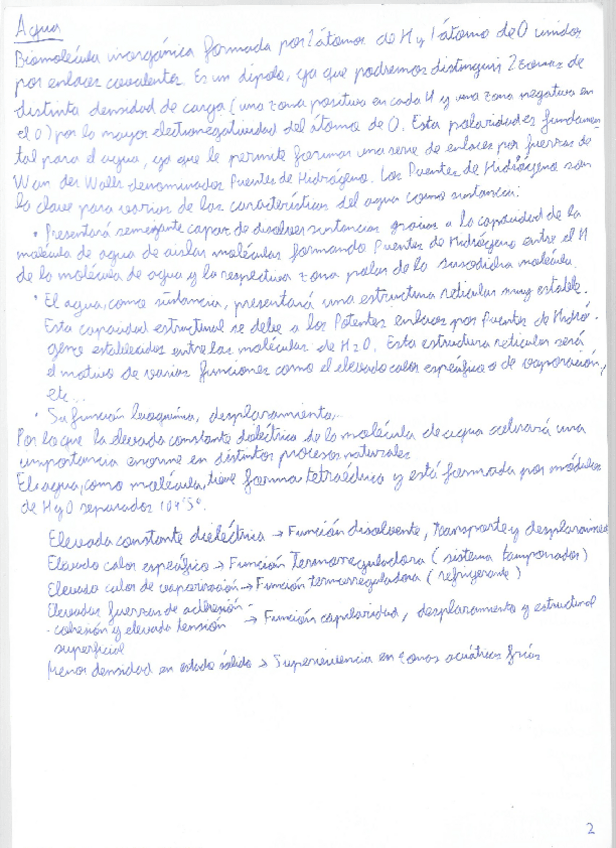 Agua
Biomolécula inorgánica formada por 2 átomos de H y 1 átomo de O unidos
por enlaces covalentes. Es un dipolo, ya que podremos distinguir 2 zonas de
distinta densidad de carga (una zona positiva en cada H y una zona negativa en
el O) por la mayor electronegatividad del átomo de O. Esta polaridad es fundamen-
tal para el agua, ya que le permite formar una serie de enlaces por fuerzas de
Wan der Walls denominados Puentes de Hidrógeno. Los Puentes de Hidrógeno son
la clave para varias de las características del agua como sustancia:
• Presentará semejante capaz de disolver sustancias gracias a la capacidad de la
molécula de agua de aislar moléculas formando Puentes de Hidrógeno entre el H
de la molécula de agua y la respectiva zona polar de la susodicha molécula.
• El agua, como sustancia, presentará una estructura reticular muy estable.
Esta capacidad estructural se debe a los Potentes enlaces por Puentes de Hidró-
geno establecidos entre las moléculas de H2O. Esta estructura reticular será
el motivo de varias funciones como el elevado calor específico o de vaporación,
etc...
• Su función bioquímica, desplazamiento...
Por lo que la elevada constante dieléctrica de la molécula de agua una
importancia enorme en distintos procesos naturales
El agua, como molécula, tiene forma tetraédrica y está formada por módulos
de H2O separados 104'5°.
Elevada constante dieléctrica → Función disolvente, transporte y desplazamiento
Elevado calor específico → Función Termorreguladora (sistema tamponador)
Elevado calor de vaporización → Función termorreguladora (refrigerante)
Elevadas fuerzas de adhesión -
- cohesión y elevada tensión → Función capilaridad, desplazamiento y estructural
superficial
Menor densidad en estado sólido → Supervivencia en zonas acuáticas frías
2